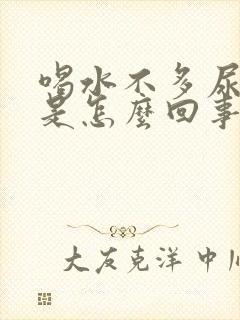 喝水不多尿
是怎麼回事
大友克洋中